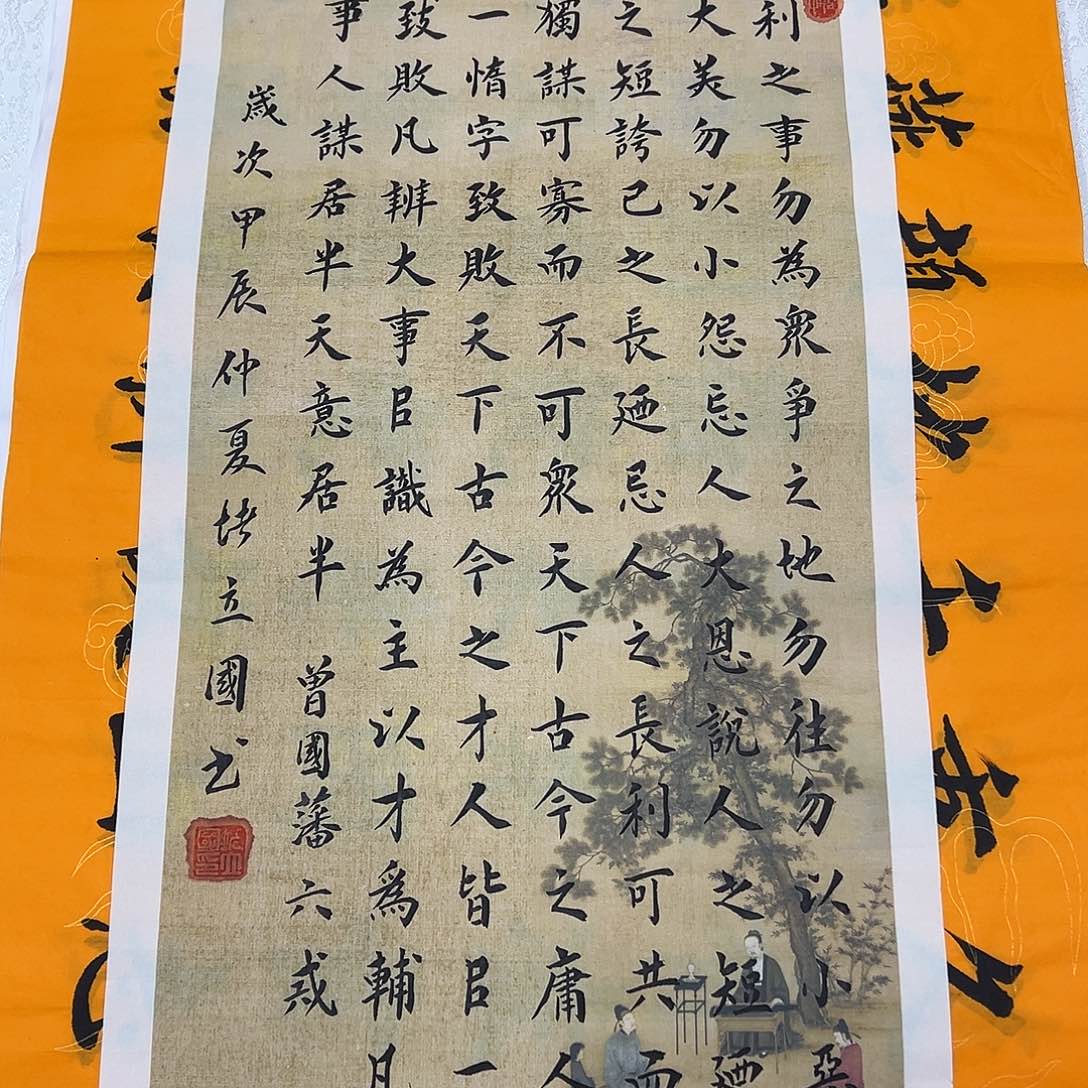 利之事勿為衆爭之地勿往勿以小惡
大美勿以小怨忘人大恩說人之短廼
之短誇己之長廼忌人之長利可共而
獨謀可寡而不可衆天下古今之庸人
一惰字致敗天下古今之才人皆㠯一
致敗凡辦大事㠯識為主以才爲輔凡
事人謀居半天意居半 曾國藩六戒
歲次甲辰仲夏立國书